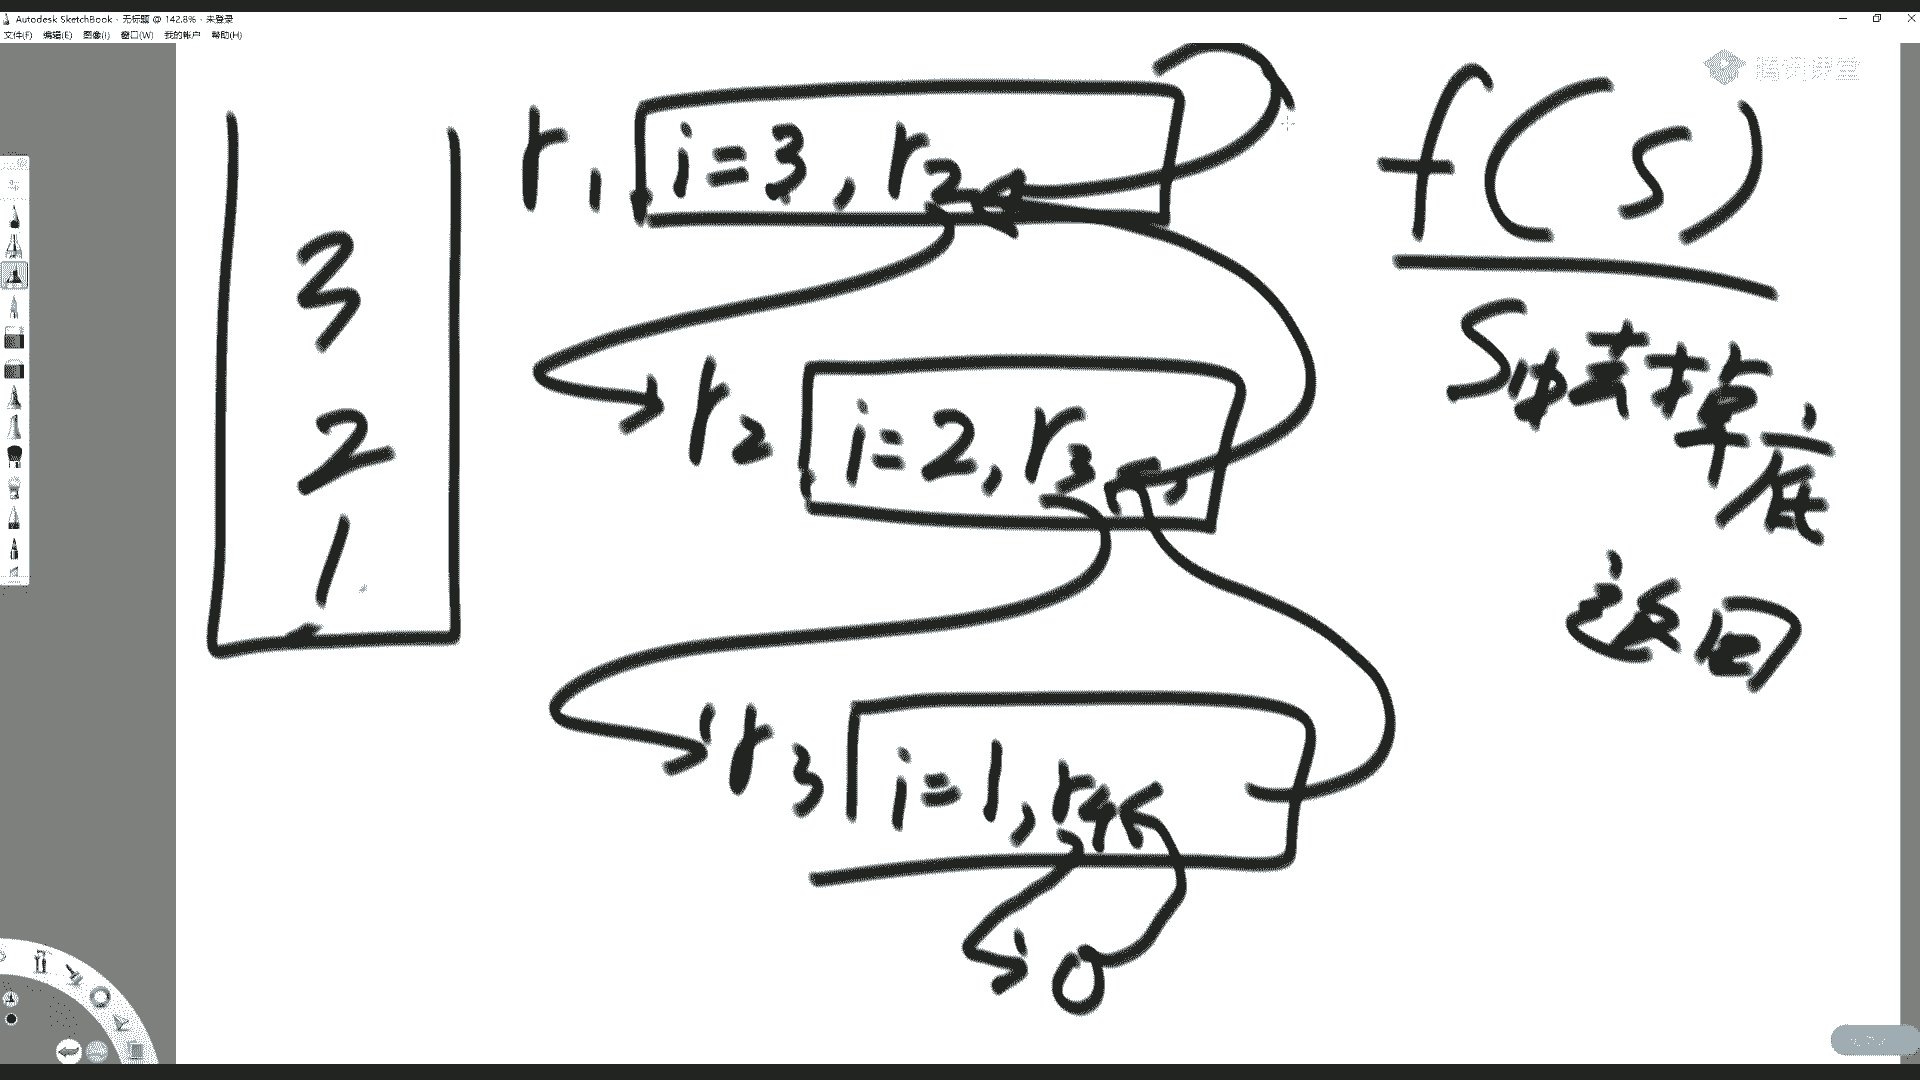 Autodesk SketchBook - 无标题 @ 142.8% - 未登录
文件(F) 编辑(E) 图像(I) 窗口(W) 我的帐户 帮助(H)
腾讯课堂
3
2
1
r1 i=3, r2
r2 i=2, r3
r3 i=1, r4
0
f(S)
S中去掉底
返回